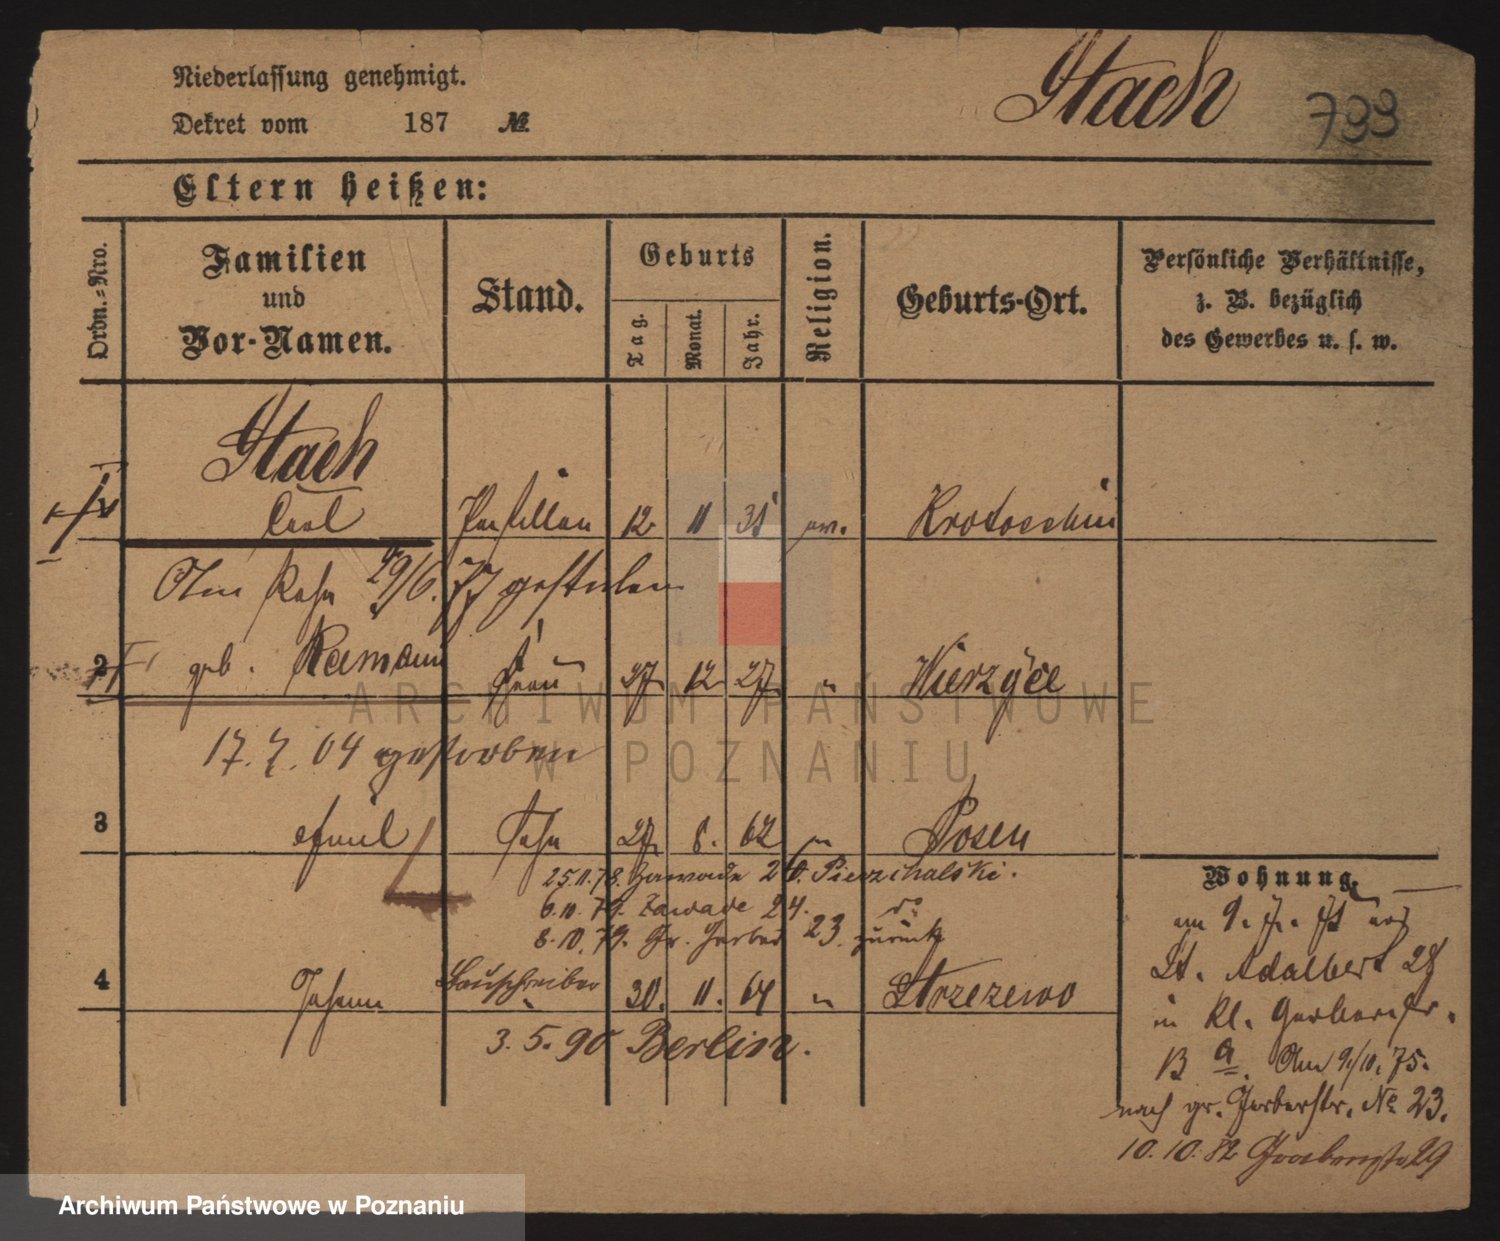 Niederlassung genehmigt.
Dekret vom 187 №
Stach 733
Eltern heißen:
Ordn.-Nro.
Familien und Vor-Namen.
Stand.
Geburts
Tag. Monat. Jahr.
Religion.
Geburts-Ort.
Persönliche Verhältnisse,
z. B. bezüglich
des Gewerbes u. s. w.
Stach
Carl 12 11 31 ev. Krotoschin
29/6. 77 gestorben
2 geb. Frau 27 12 27 " Wierzyce
17. 7. 04 gestorben
3 Emil Sohn 27 8. 62 " Posen
25.11.78. Zawade 20. Pierzchalski.
6.10.79. Zawade 24. do
8.10.79. Gr. Gerber 23. zurück
4 Johann Bauschreiber 30. 11. 64 " Strzezewo
3. 5. 90 Berlin.
Wohnung
am 9. 7. 75 aus
St. Adalbert 28
in Kl. Gerberstr.
Am 9/10. 75.
nach gr. Gerberstr. № 23.
10. 10. 82 Grabenstr 29
ARCHIWUM PAŃSTWOWE
W POZNANIU
Archiwum Państwowe w Poznaniu